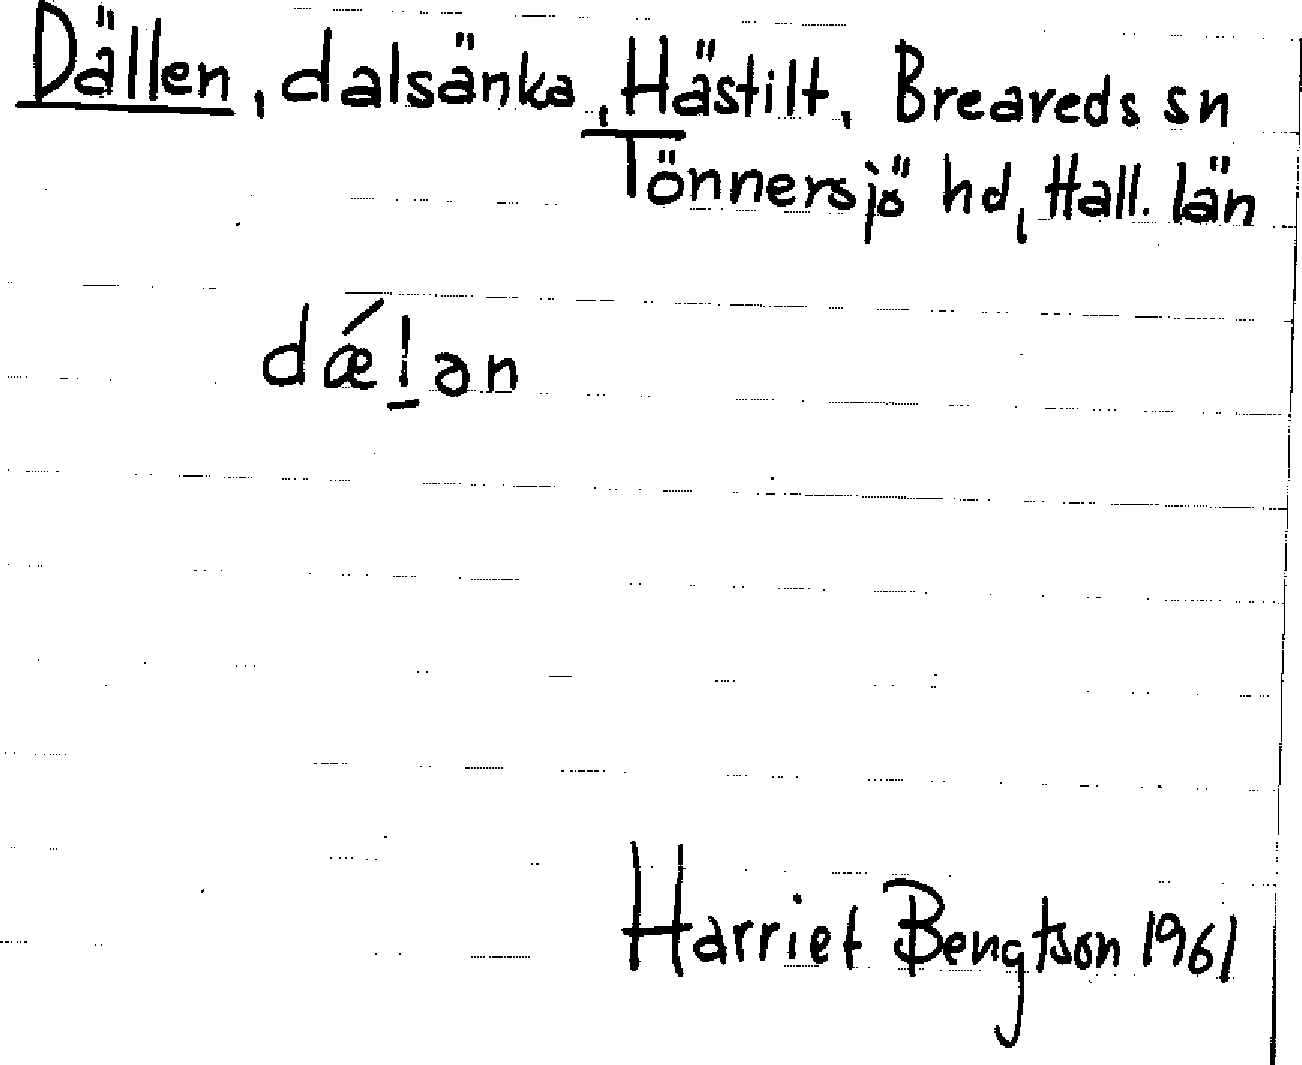 Dällen, dalsänka, Hästilt, Breareds sn
Tönnersjö hd, Hall. län
dǽl̠ən
Harriet Bengtson 1961